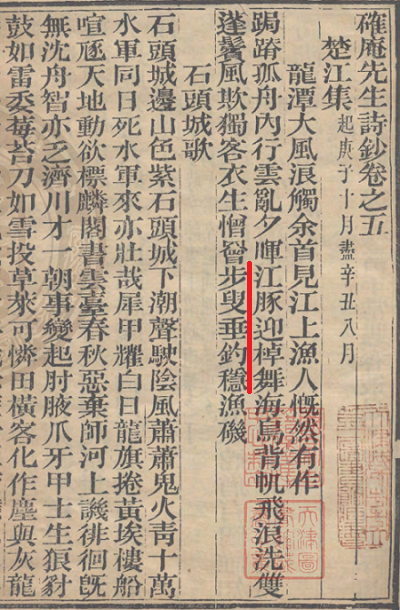 確庵先生詩鈔卷之五
楚江集起庚子十月盡辛丑八月
龍潭大風浪觸余首見江上漁人慨然有作
跼蹐孤舟內行雲亂夕暉江豚迎棹舞海鳥背帆飛浪洗雙
蓬鬢風欺獨客衣生憎罾步叟垂釣穩漁磯
石頭城歌
石頭城邊山色紫石頭城下潮聲駛陰風蕭蕭鬼火青十萬
水軍同日死水軍來亦壯哉犀甲耀白日龍旗捲黃埃樓船
喧豗天地動欲標麟閣書雲臺春秋惡棄師河上譏徘徊旣
無沈舟智亦乏濟川才一朝事變起肘腋爪牙甲士生狼豺
鼓如雷丞莓苔刀如雪投草萊可憐田橫客化作塵與灰龍